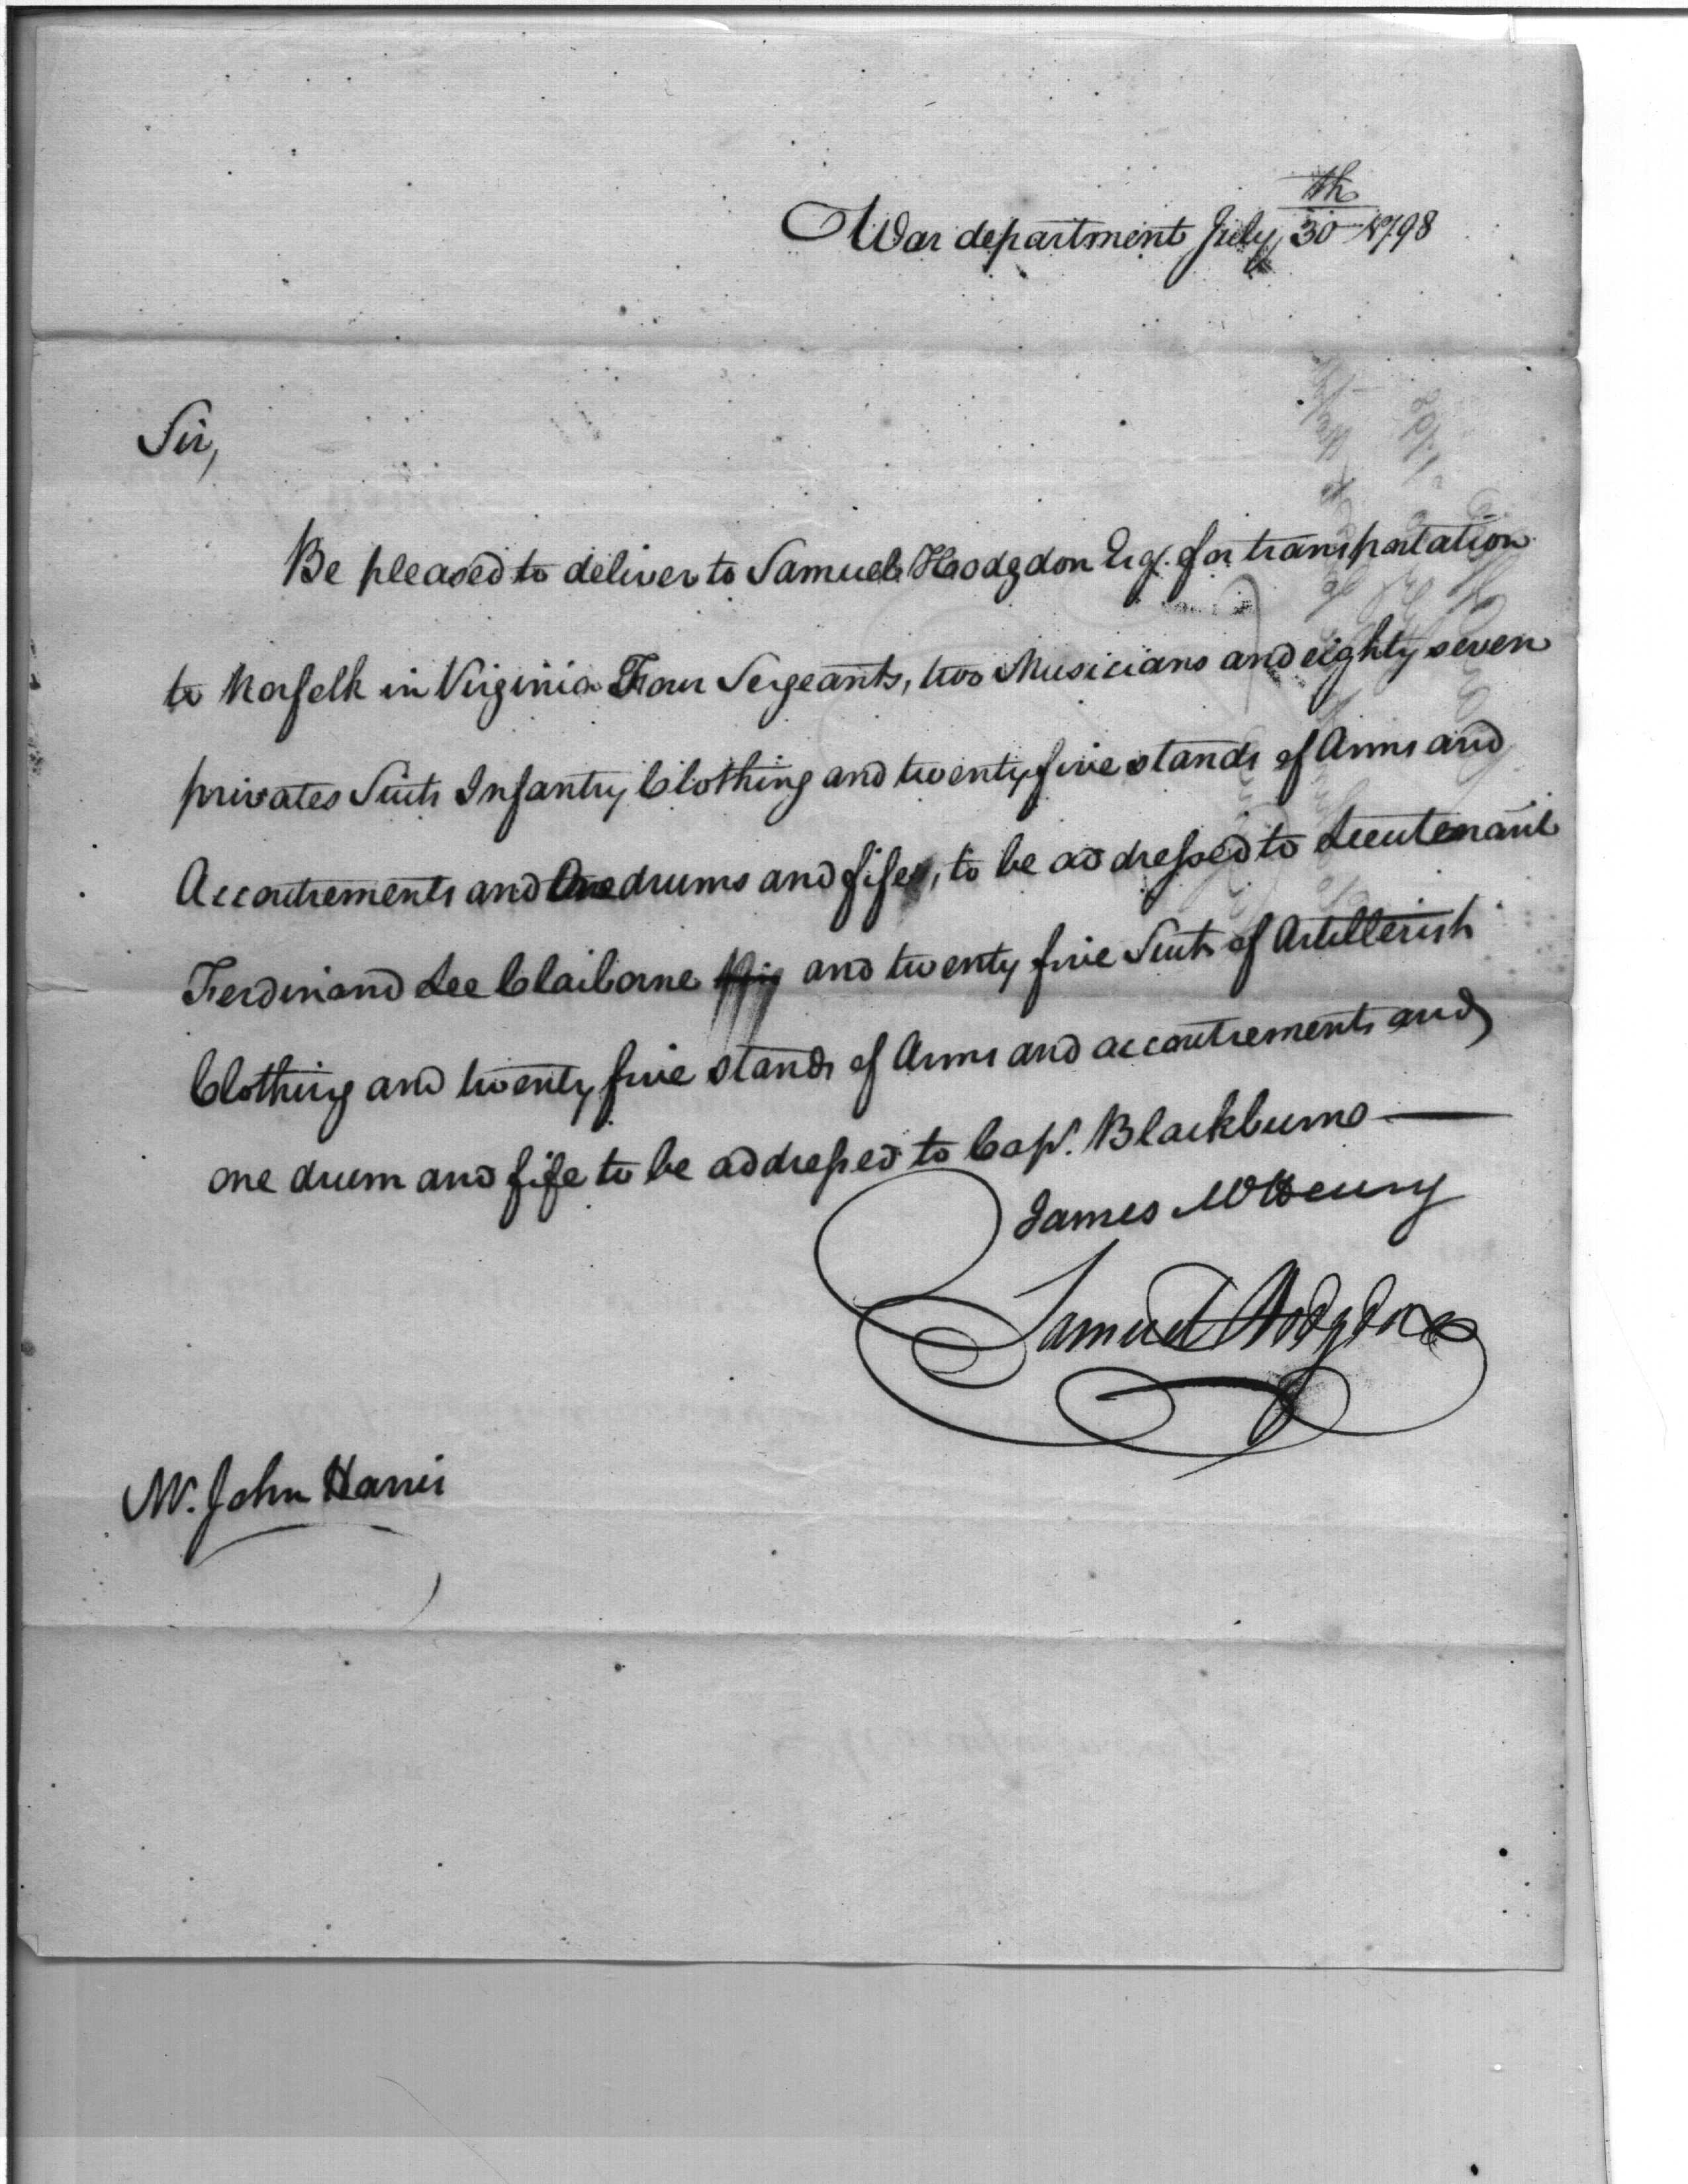 War department July 30th 1798
Sir,
Be pleased to deliver to Samuel Hodgdon Esq. for transportation
to Norfolk in Virginia Four Sergeants, two Musicians and eighty seven
privates Suits Infantry Clothing and twenty five stands of Arms and
Accoutrements and One drums and fifes, to be addressed to Lieutenant
Ferdinand Lee Claiborne and twenty five Suits of Artillerists
Clothing and twenty five stands of Arms and accoutrements and
one drum and fife to be addressed to Capt. Blackburne
James McHenry
Samuel Hodgdon
Mr. John Harris